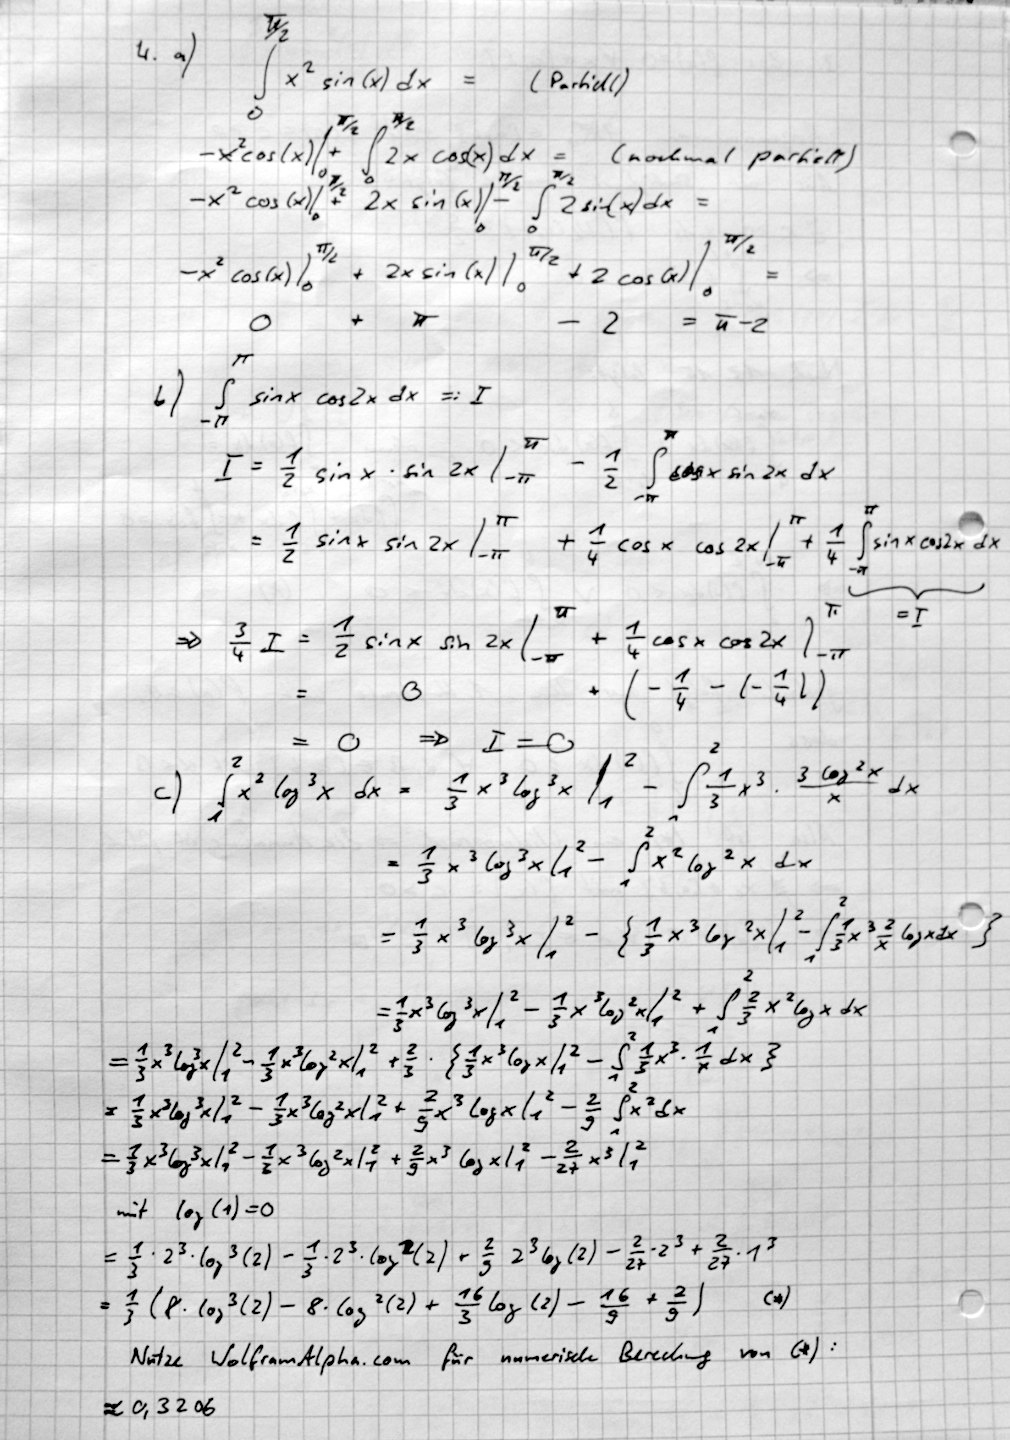 4. a) ∫_0^{π/2} x² sin(x) dx = (Partiell)
-x² cos(x)|_0^{π/2} + ∫_0^{π/2} 2x cos(x) dx = (nochmal partiell)
-x² cos(x)|_0^{π/2} + 2x sin(x)|_0^{π/2} - ∫_0^{π/2} 2 sin(x) dx =
-x² cos(x)|_0^{π/2} + 2x sin(x)|_0^{π/2} + 2 cos(x)|_0^{π/2} =
0 + π - 2 = π-2
b) ∫_{-π}^{π} sin x cos 2x dx =: I
I = 1/2 sin x · sin 2x |_{-π}^{π} - 1/2 ∫_{-π}^{π} cos x sin 2x dx
= 1/2 sin x sin 2x |_{-π}^{π} + 1/4 cos x cos 2x |_{-π}^{π} + 1/4 ∫_{-π}^{π} sin x cos 2x dx
= I
⇒ 3/4 I = 1/2 sin x sin 2x |_{-π}^{π} + 1/4 cos x cos 2x |_{-π}^{π}
= 0 + (-1/4 - (-1/4))
= 0 ⇒ I = 0
c) ∫_1^2 x² log³x dx = 1/3 x³ log³x |_1^2 - ∫_1^2 1/3 x³ · (3 log²x)/x dx
= 1/3 x³ log³x |_1^2 - ∫_1^2 x² log²x dx
= 1/3 x³ log³x |_1^2 - { 1/3 x³ log²x |_1^2 - ∫_1^2 1/3 x³ 2/x log x dx }
= 1/3 x³ log³x |_1^2 - 1/3 x³ log²x |_1^2 + ∫_1^2 2/3 x² log x dx
= 1/3 x³ log³x |_1^2 - 1/3 x³ log²x |_1^2 + 2/3 · { 1/3 x³ log x |_1^2 - ∫_1^2 1/3 x³ · 1/x dx }
= 1/3 x³ log³x |_1^2 - 1/3 x³ log²x |_1^2 + 2/9 x³ log x |_1^2 - 2/9 ∫_1^2 x² dx
= 1/3 x³ log³x |_1^2 - 1/3 x³ log²x |_1^2 + 2/9 x³ log x |_1^2 - 2/27 x³ |_1^2
mit log(1) = 0
= 1/3 · 2³ · log³(2) - 1/3 · 2³ · log²(2) + 2/9 2³ log(2) - 2/27 · 2³ + 2/27 · 1³
= 1/3 (8 · log³(2) - 8 · log²(2) + 16/3 log(2) - 16/9 + 2/9) (*)
Nutze WolframAlpha.com für numerische Berechung von (*) :
≈ 0,3206